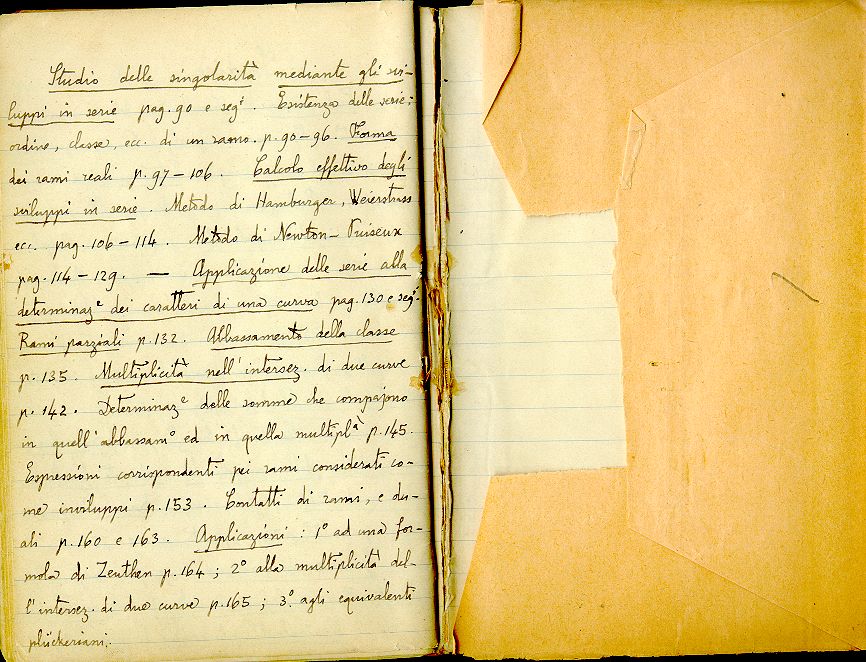 Studio delle singolarità mediante gli svi-
luppi in serie pag. 90 e segⁱ. Esistenza delle serie;
ordine, classe, ecc. di un ramo. p. 90–96. Forma
dei rami reali p. 97–106. Calcolo effettivo degli
sviluppi in serie. Metodo di Hamburger, Weierstrass
ecc. pag. 106–114. Metodo di Newton–Puiseux
pag. 114–129. — Applicazione delle serie alla
determinazᵉ dei caratteri di una curva pag. 130 e segⁱ.
Rami parziali p. 132. Abbassamento della classe
p. 135. Multiplicità nell'intersez. di due curve
p. 142. Determinazᵉ delle somme che compajono
in quell'abbassamᵒ ed in quella multiplᵃ̀ p. 145.
Espressioni corrispondenti pei rami considerati co-
me inviluppi p. 153. Contatti di rami, e du-
ali p. 160 e 163. Applicazioni: 1º ad una for-
mola di Zeuthen p. 164; 2º alla multiplicità del-
l'intersez. di due curve p. 165; 3º. agli equivalenti
plückeriani.